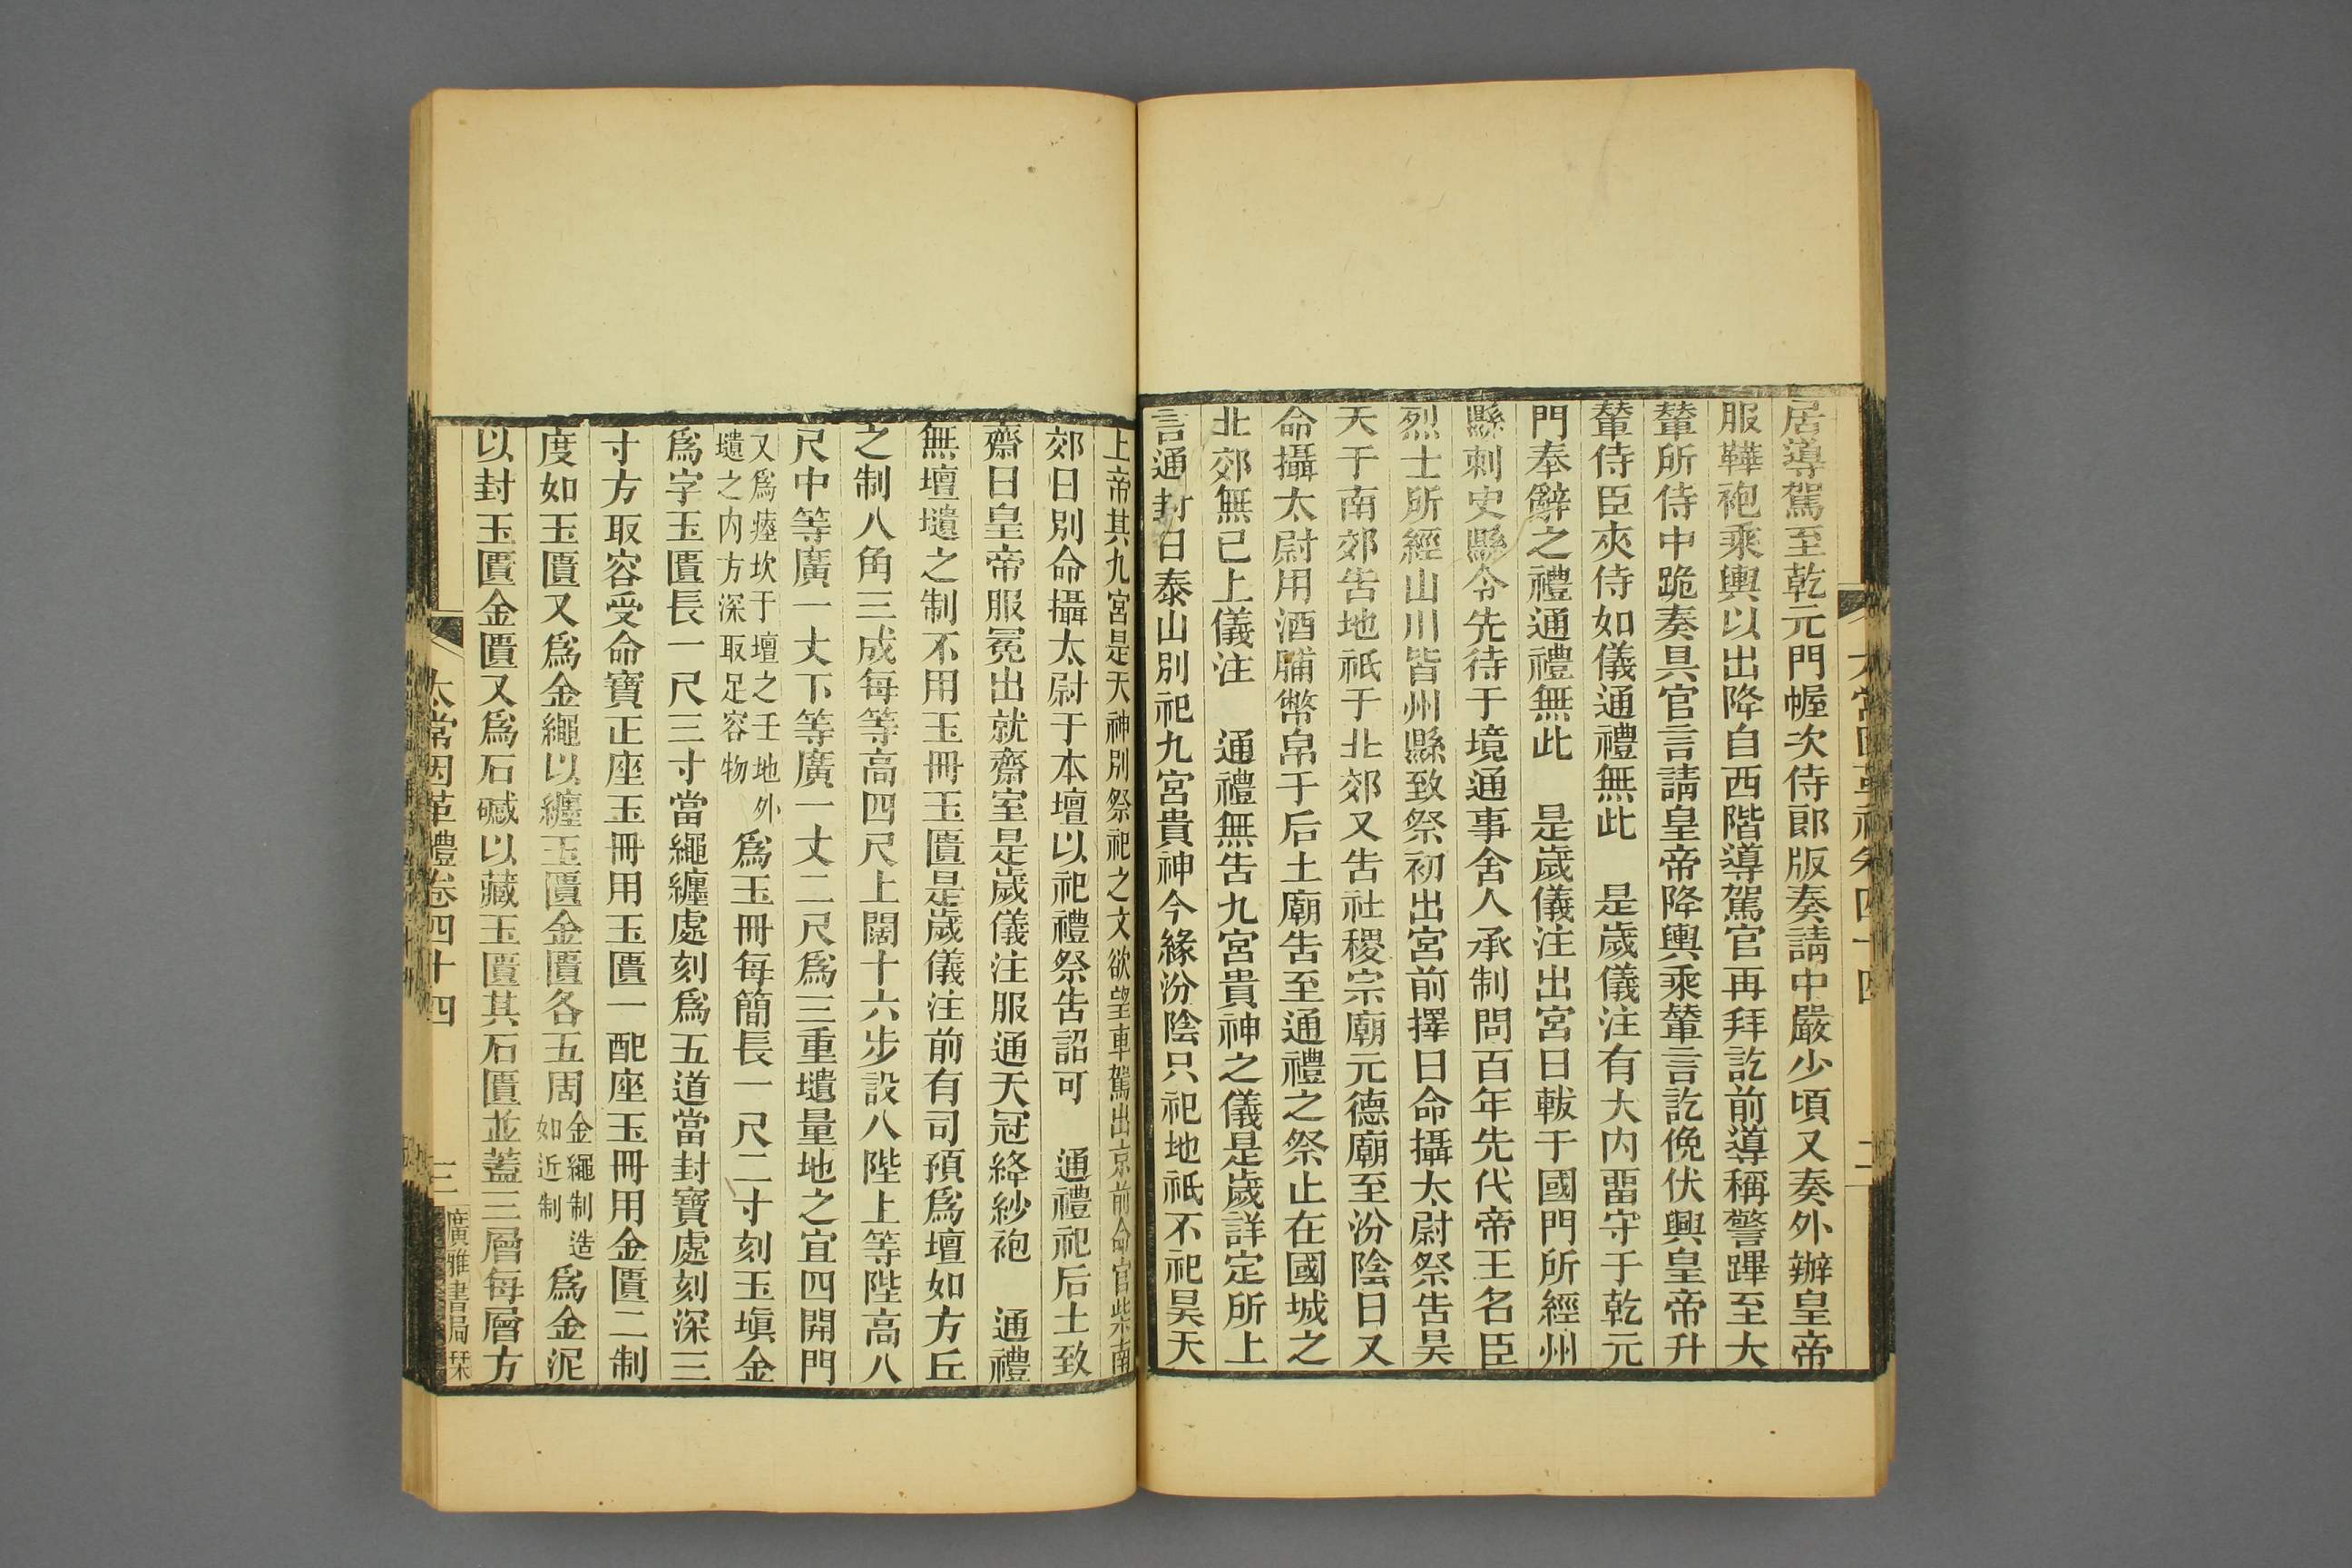 居導駕至乾元門幄次侍郎版奏請中嚴少頃又奏外辦皇帝
服鞾袍乘輿以出降自西階導駕官再拜訖前導稱警蹕至大
輦所侍中跪奏具官言請皇帝降輿乘輦言訖俛伏興皇帝升
輦侍臣夾侍如儀通禮無此　是歲儀注有大内畱守于乾元
門奉辭之禮通禮無此　是歲儀注出宮日軷于國門所經州
縣刺史縣令先待于境通事舍人承制問百年先代帝王名臣
烈士所經山川皆州縣致祭初出宮前擇日命攝太尉祭告昊
天于南郊告地祇于北郊又告社稷宗廟元德廟至汾陰日又
命攝太尉用酒脯幣帛于后土廟告至通禮之祭止在國城之
北郊無已上儀注　通禮無告九宮貴神之儀是歲詳定所上
言通封日泰山別祀九宮貴神今緣汾陰只祀地祇不祀昊天
上帝其九宮是天神別祭祀之文欲望車駕出京前命官柴南
郊日別命攝太尉于本壇以祀禮祭告詔可　通禮祀后土致
齋日皇帝服冕出就齋室是歲儀注服通天冠絳紗袍　通禮
無壇壝之制不用玉冊玉匱是歲儀注前有司預爲壇如方丘
之制八角三成每等高四尺上闊十六步設八陛上等陛高八
尺中等廣一丈下等廣一丈二尺爲三重壝量地之宜四開門
又爲瘞坎于壇之壬地外
壝之内方深取足容物
爲玉冊每簡長一尺二寸刻玉塡金
爲字玉匱長一尺三寸當繩纏處刻爲五道當封寶處刻深三
寸方取容受命寶正座玉冊用玉匱一配座玉冊用金匱二制
度如玉匱又爲金繩以纏玉匱金匱各五周
金繩制造
如近制
爲金泥
以封玉匱金匱又爲石䃭以藏玉匱其石匱並蓋三層每層方
太常因革禮卷四十四
三
廣雅書局栞